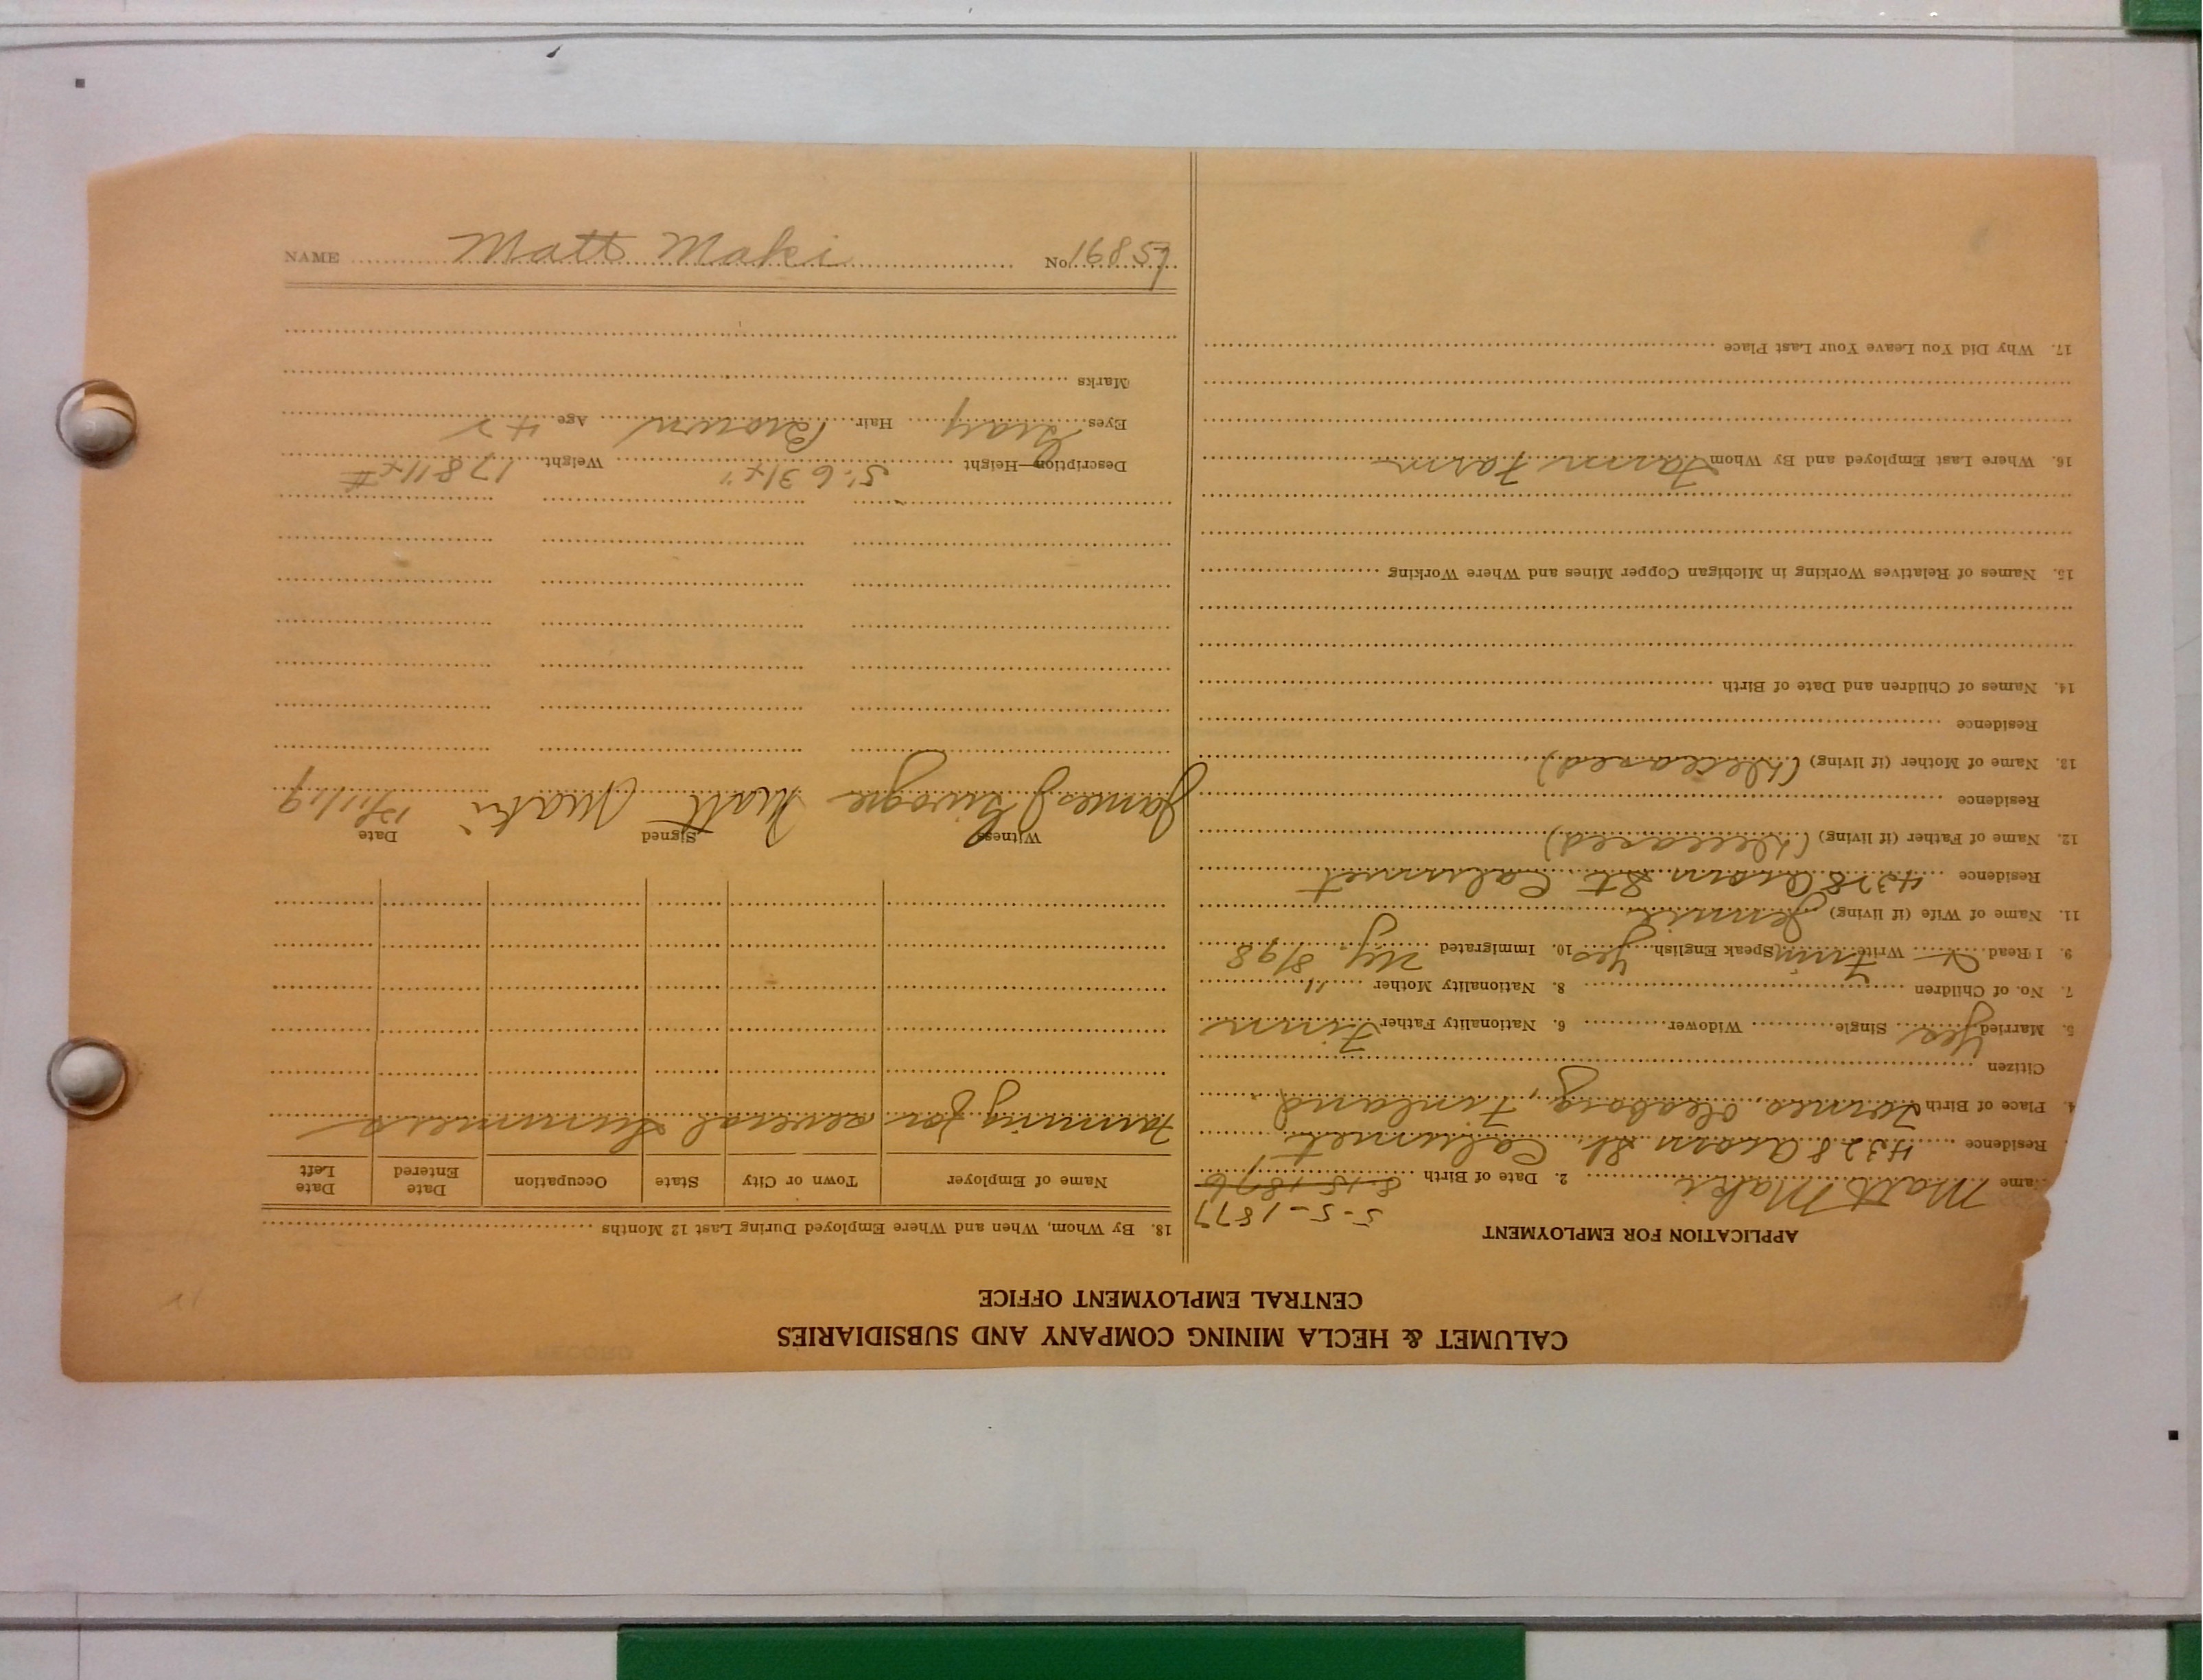 CALUMET & HECLA MINING COMPANY AND SUBSIDIARIES
CENTRAL EMPLOYMENT OFFICE
APPLICATION FOR EMPLOYMENT
5-5-1877
ame Matt Maki 2. Date of Birth 8-15-1876
Residence 4328 Acorn St. Calumet
4. Place of Birth Oleaborg, Finland
Citizen
5. Married Yes Single Widower 6. Nationality Father Finn
7. No. of Children 8. Nationality Mother "
9. I Read Write Finn Speak English Yes 10. Immigrated NY. 8/98
11. Name of Wife (if living) Jennie
Residence 4328 Acorn St. Calumet
12. Name of Father (if living) (Deceased)
Residence
13. Name of Mother (if living) (Deceased)
Residence
14. Names of Children and Date of Birth
15. Names of Relatives Working in Michigan Copper Mines and Where Working
16. Where Last Employed and By Whom Farm
17. Why Did You Leave Your Last Place
18. By Whom, When and Where Employed During Last 12 Months
Name of Employer Town or City State Occupation Date Entered Date Left
Farming for several Summers
Witness Signed Date
James J Matt Maki 12/11/19
Description—Height 5' 6 3/4" Weight 178 1/2 #
Eyes Gray Hair Brown Age 42
Marks
NAME Matt Maki No. 16857
RECORD